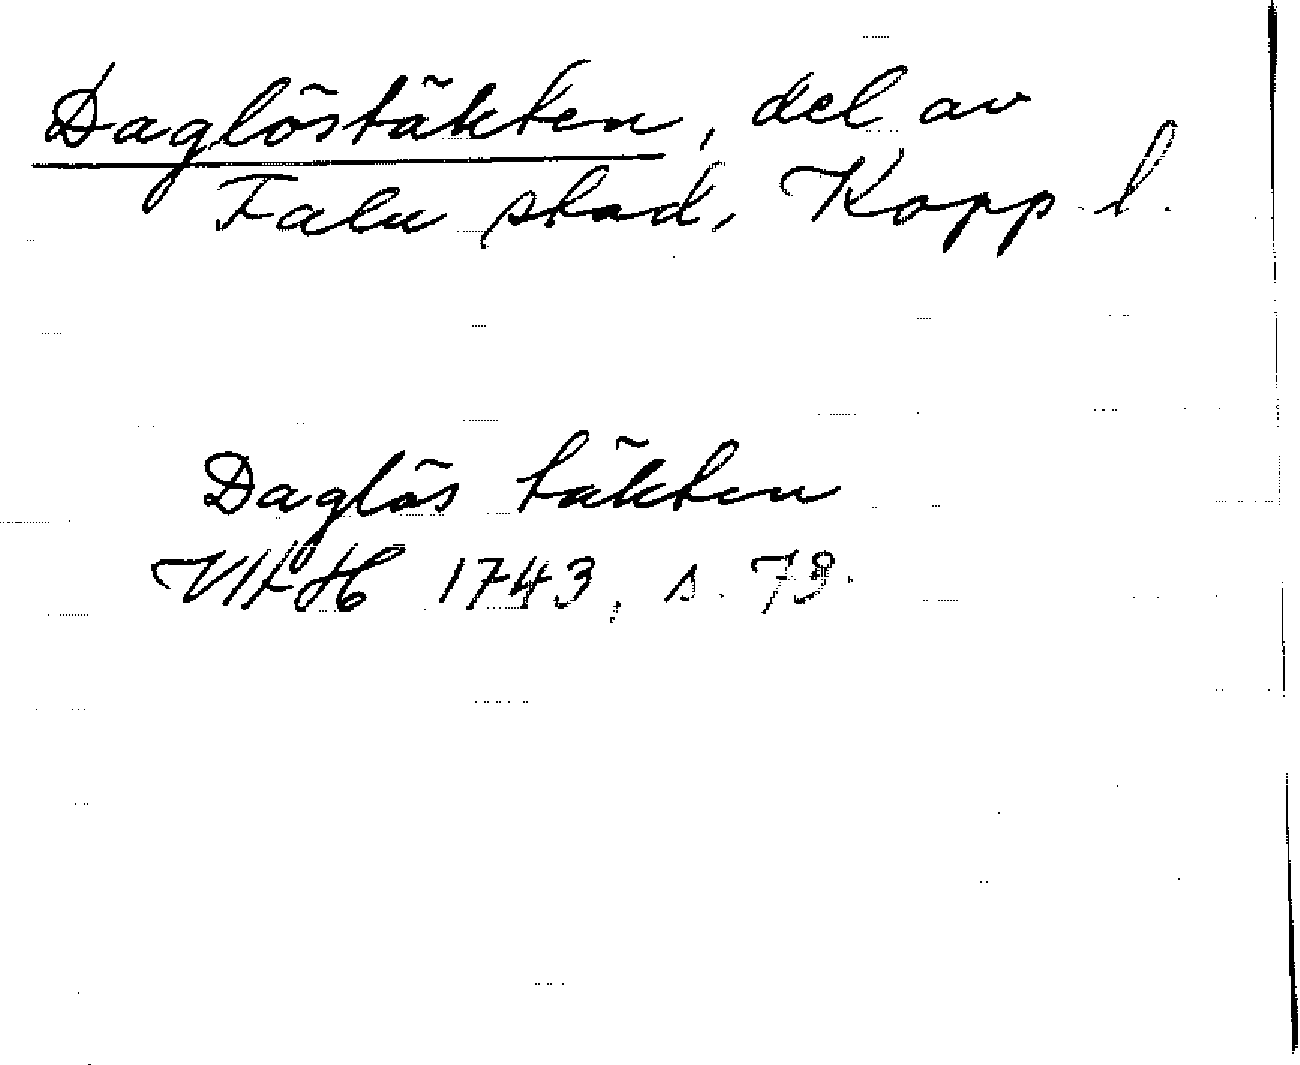 Daglöstäkten, del av
Falu stad, Kopp. l.
Daglös täkten
VAH 1743, s. 79.